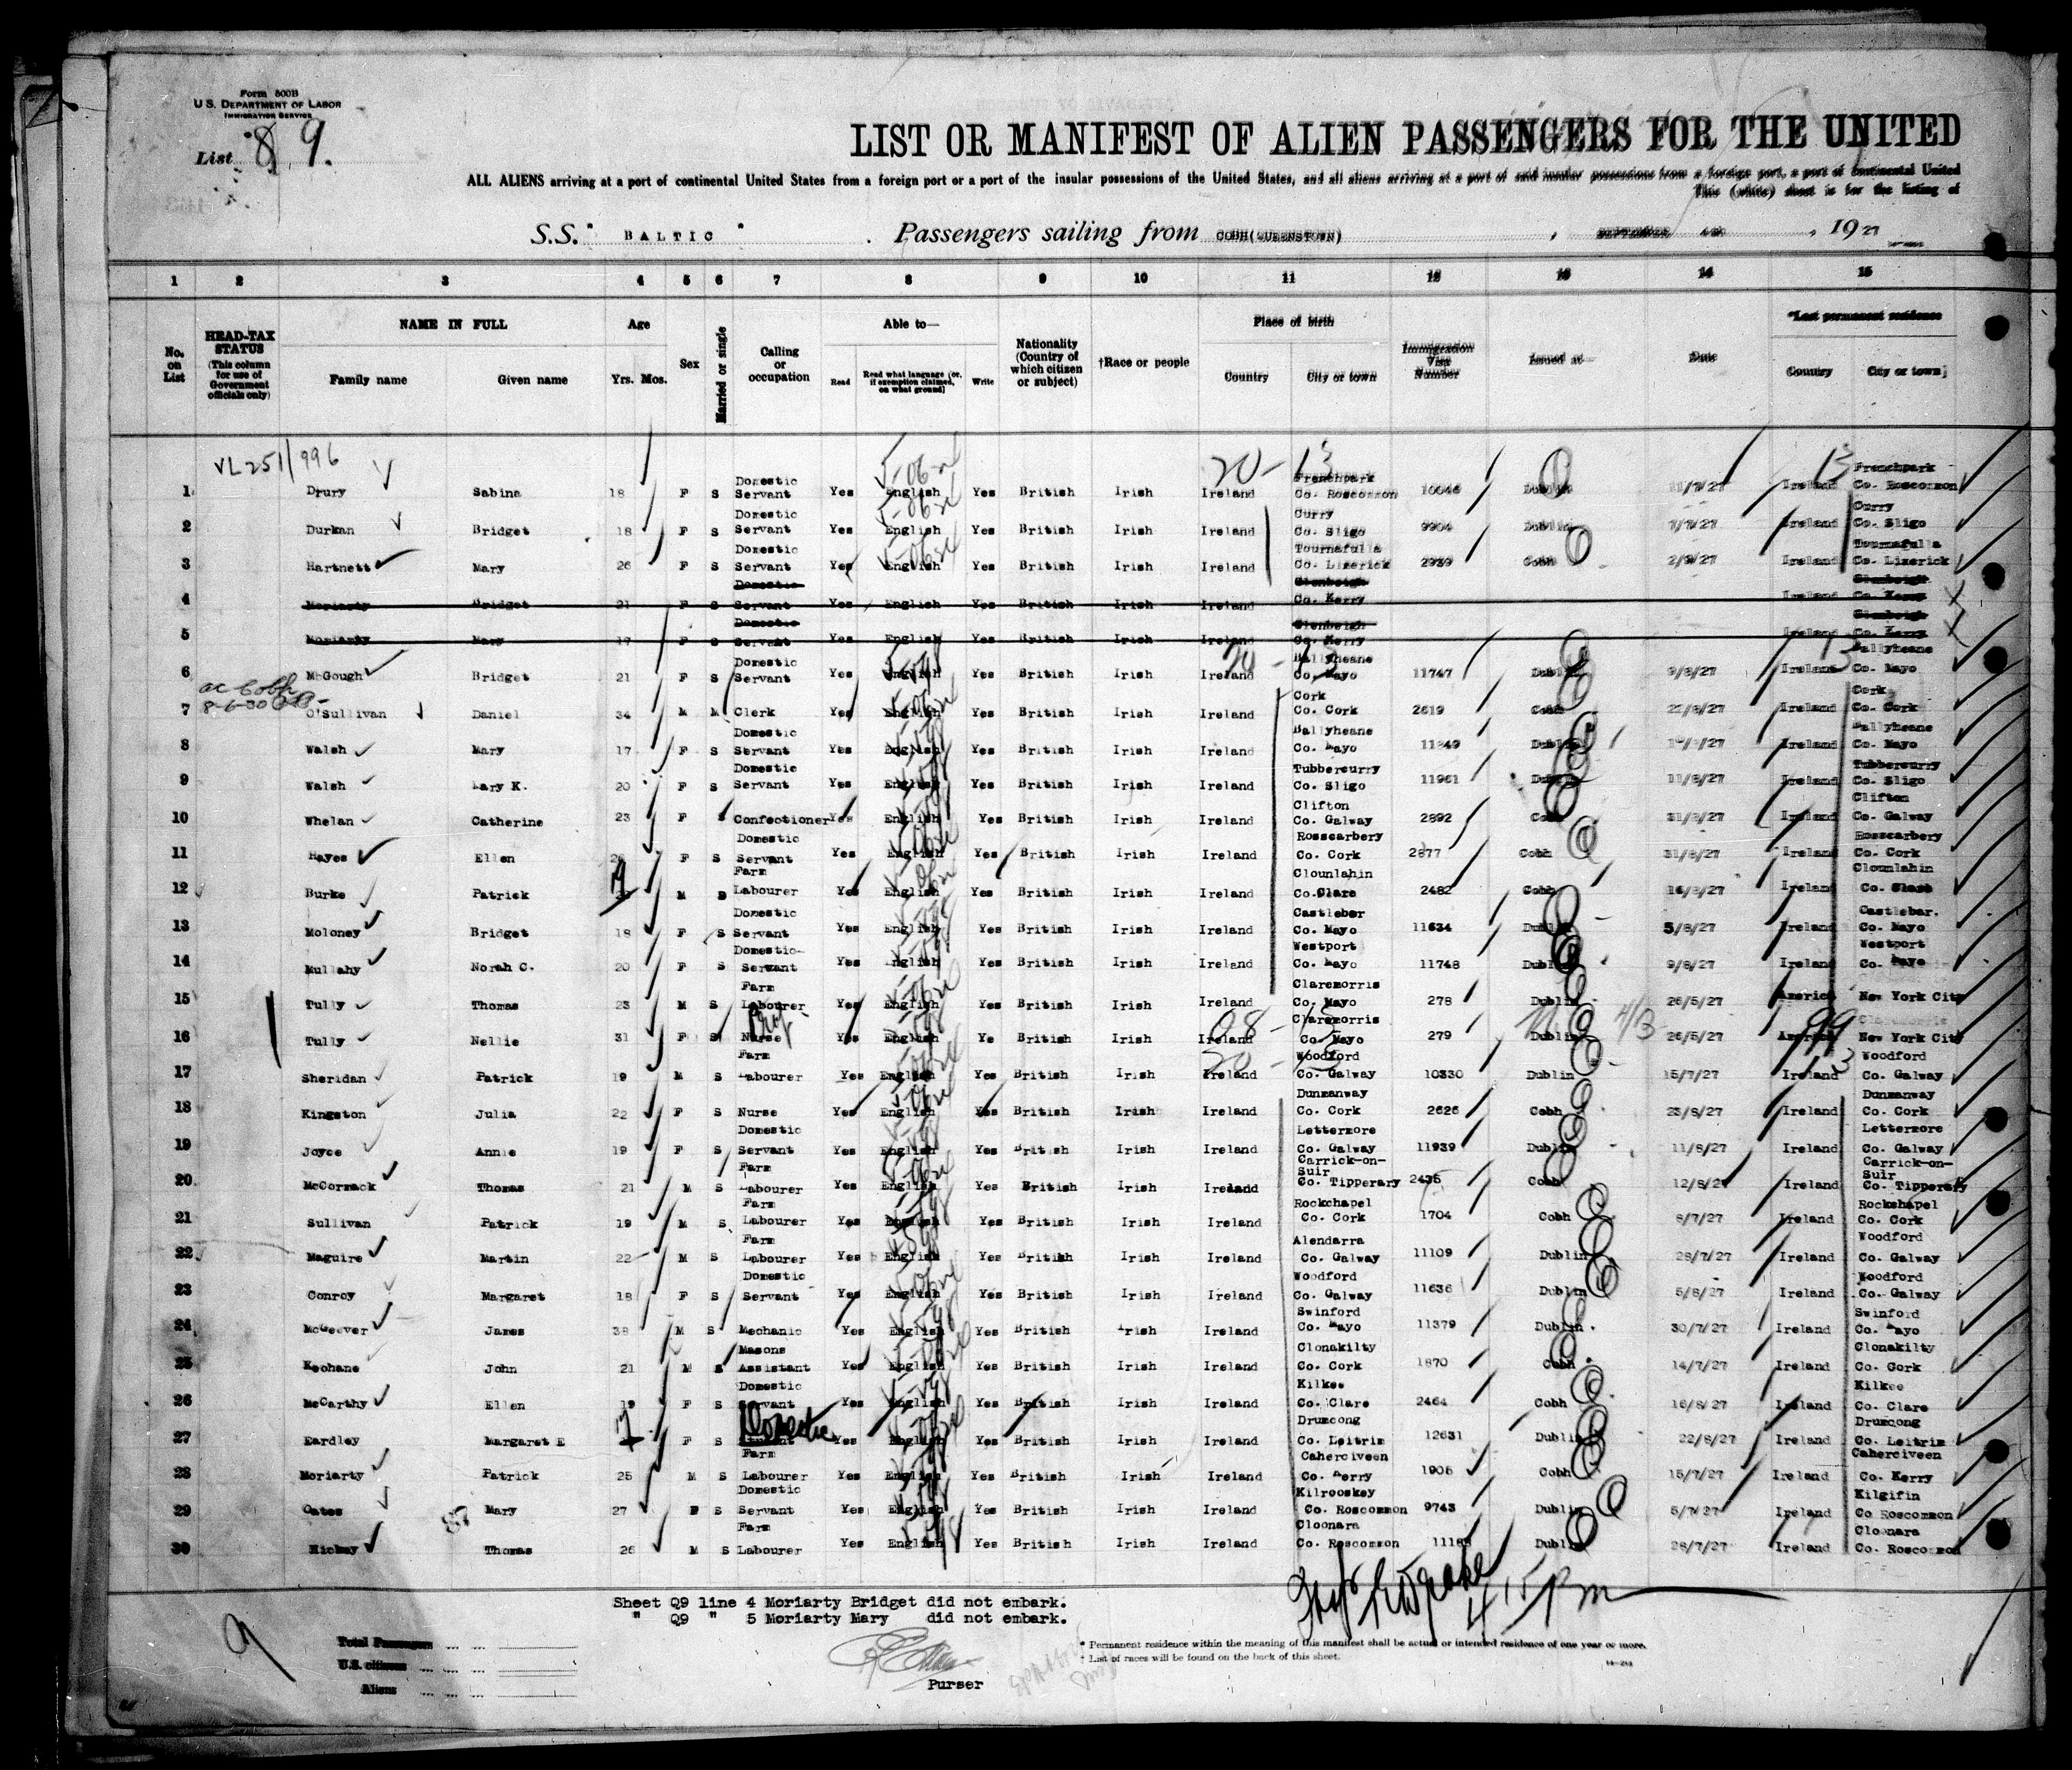 Form 500B
U.S. DEPARTMENT OF LABOR
IMMIGRATION SERVICE
List 8 9.
LIST OR MANIFEST OF ALIEN PASSENGERS FOR THE UNITED
ALL ALIENS arriving at a port of continental United States from a foreign port or a port of the insular possessions of the United States, and all aliens arriving at a port of said insular possessions from a foreign port, a port of continental United
This (white) sheet is for the listing of
S.S. " BALTIC " Passengers sailing from COBH(QUEENSTOWN), SEPTEMBER, 1927
1 2 3 4 5 6 7 8 9 10 11 12 13 14 15
No. on List
HEAD-TAX STATUS (This column for use of Government officials only)
NAME IN FULL Family name Given name
Age Yrs. Mos.
Sex
Married or single
Calling or occupation
Able to— Read Read what language (or, if exemption claimed, on what ground) Write
Nationality (Country of which citizen or subject)
†Race or people
Place of birth Country City or town
Immigration Visa Number
Issued at—
Date
*Last permanent residence Country City or town
VL251/996 20-13 13
1 Drury Sabina 18 F S Domestic Servant Yes English Yes British Irish Ireland Frenchpark Co. Roscommon 10046 Dublin Ireland Frenchpark Co. Roscommon
2 Durkan Bridget 18 F S Domestic Servant Yes English Yes British Irish Ireland Curry Co. Sligo 9904 Dublin 7/7/27 Ireland Curry Co. Sligo
3 Hartnett Mary 26 F S Domestic Servant Yes English Yes British Irish Ireland Tournafulla Co. Limerick 2939 Cobh 2/9/27 Ireland Tournafulla Co. Limerick
4 Moriarty Bridget 21 F S Domestic Servant Yes English Yes British Irish Ireland Glenbeigh Co. Kerry Ireland Glenbeigh Co. Kerry
5 Moriarty Mary F S Domestic Servant Yes English Yes British Irish Ireland Glenbeigh Co. Kerry Ireland Glenbeigh Co. Kerry
6 McGough Bridget 21 F S Domestic Servant Yes English Yes British Irish Ireland Ballyheane Co. Mayo 11747 Dublin 9/8/27 Ireland Ballyheane Co. Mayo
8-6-30
7 O'Sullivan Daniel 34 M M Clerk Yes English Yes British Irish Ireland Cork Co. Cork 2619 Cobh Ireland Cork Co. Cork
8 Walsh Mary 17 F S Domestic Servant Yes English Yes British Irish Ireland Ballyheane Co. Mayo 11849 Dublin Ireland Ballyheane Co. Mayo
9 Walsh Mary K. 20 F S Domestic Servant Yes English Yes British Irish Ireland Tubbercurry Co. Sligo 11961 Dublin 11/8/27 Ireland Tubbercurry Co. Sligo
10 Whelan Catherine 23 F S Confectioner Yes English Yes British Irish Ireland Clifton Co. Galway 2892 Cobh 31/8/27 Ireland Clifton Co. Galway
11 Hayes Ellen F S Domestic Servant Yes English Yes British Irish Ireland Rosscarbery Co. Cork 2877 Cobh 31/8/27 Ireland Rosscarbery Co. Cork
12 Burke Patrick M S Farm Labourer Yes English Yes British Irish Ireland Clounlahin Co.Clare 2482 Cobh 16/8/27 Ireland Clounlahin Co. Clare
13 Moloney Bridget 18 F S Domestic Servant Yes English Yes British Irish Ireland Castlebar Co. Mayo 11634 Dublin 5/8/27 Ireland Castlebar. Co. Mayo
14 Mullahy Norah C. 20 F S Domestic Servant Yes English Yes British Irish Ireland Westport Co. Mayo 11748 Dublin 9/8/27 Ireland Westport Co. Mayo
15 Tully Thomas 23 M S Farm Labourer Yes English Yes British Irish Ireland Claremorris Co. Mayo 278 Dublin 26/5/27 America New York City
16 Tully Nellie 31 F S Nurse Yes English Ye British Irish Ireland Claremorris Co. Mayo 279 Dublin 26/5/27 America New York City
17 Sheridan Patrick 19 M S Farm Labourer Yes English Yes British Irish Ireland Woodford Co. Galway 10330 Dublin 15/7/27 Ireland Woodford Co. Galway
18 Kingston Julia 22 F S Nurse Yes English Yes British Irish Ireland Dunmanway Co. Cork 2626 Cobh 23/8/27 Ireland Dunmanway Co. Cork
19 Joyce Annie 19 F S Domestic Servant Yes English Yes British Irish Ireland Lettermore Co. Galway 11939 Dublin 11/8/27 Ireland Lettermore Co. Galway
20 McCormack Thomas 21 M S Farm Labourer Yes English Yes British Irish Ireland Carrick-on-Suir Co. Tipperary 2435 Cobh 12/8/27 Ireland Carrick-on-Suir Co. Tipperary
21 Sullivan Patrick 19 M S Farm Labourer Yes English Yes British Irish Ireland Rockchapel Co. Cork 1704 Cobh 8/7/27 Ireland Rockchapel Co. Cork
22 Maguire Martin 22 M S Farm Labourer Yes English Yes British Irish Ireland Alendarra Co. Galway 11109 Dublin 28/7/27 Ireland Woodford Co. Galway
23 Conroy Margaret 18 F S Domestic Servant Yes English Yes British Irish Ireland Woodford Co. Galway 11636 Dublin 5/8/27 Ireland Woodford Co. Galway
24 McGeever James 38 M S Mechanic Yes English Yes British Irish Ireland Swinford Co. Mayo 11379 Dublin 30/7/27 Ireland Swinford Co. Mayo
25 Keohane John 21 M S Masons Assistant Yes English Yes British Irish Ireland Clonakilty Co. Cork 1870 Cobh 14/7/27 Ireland Clonakilty Co. Cork
26 McCarthy Ellen 19 F S Domestic Servant Yes English Yes British Irish Ireland Kilkee Co. Clare 2464 Cobh 16/8/27 Ireland Kilkee Co. Clare
27 Eardley Margaret E 17 F S Domestic Yes English Yes British Irish Ireland Drumcong Co. Leitrim 12631 Dublin 22/8/27 Ireland Drumcong Co. Leitrim
28 Moriarty Patrick 25 M S Farm Labourer Yes English Yes British Irish Ireland Caherciveen Co. Kerry 1906 Cobh 15/7/27 Ireland Caherciveen Co. Kerry
29 Oates Mary 27 F S Domestic Servant Yes English Yes British Irish Ireland Kilrooskey Co. Roscommon 9743 Dublin 5/7/27 Ireland Kilgifin Co Roscommon
30 Hickey Thomas 26 M S Farm Labourer Yes English Yes British Irish Ireland Cloonara Co. Roscommon Dublin 28/7/27 Ireland Cloonara Co. Roscommon
Sheet Q9 line 4 Moriarty Bridget did not embark.
" Q9 " 5 Moriarty Mary did not embark.
4.15 Pm
9
Total Passengers
U.S. citizens
Aliens
Purser
* Permanent residence within the meaning of this manifest shall be actual or intended residence of one year or more.
† List of races will be found on the back of this sheet.